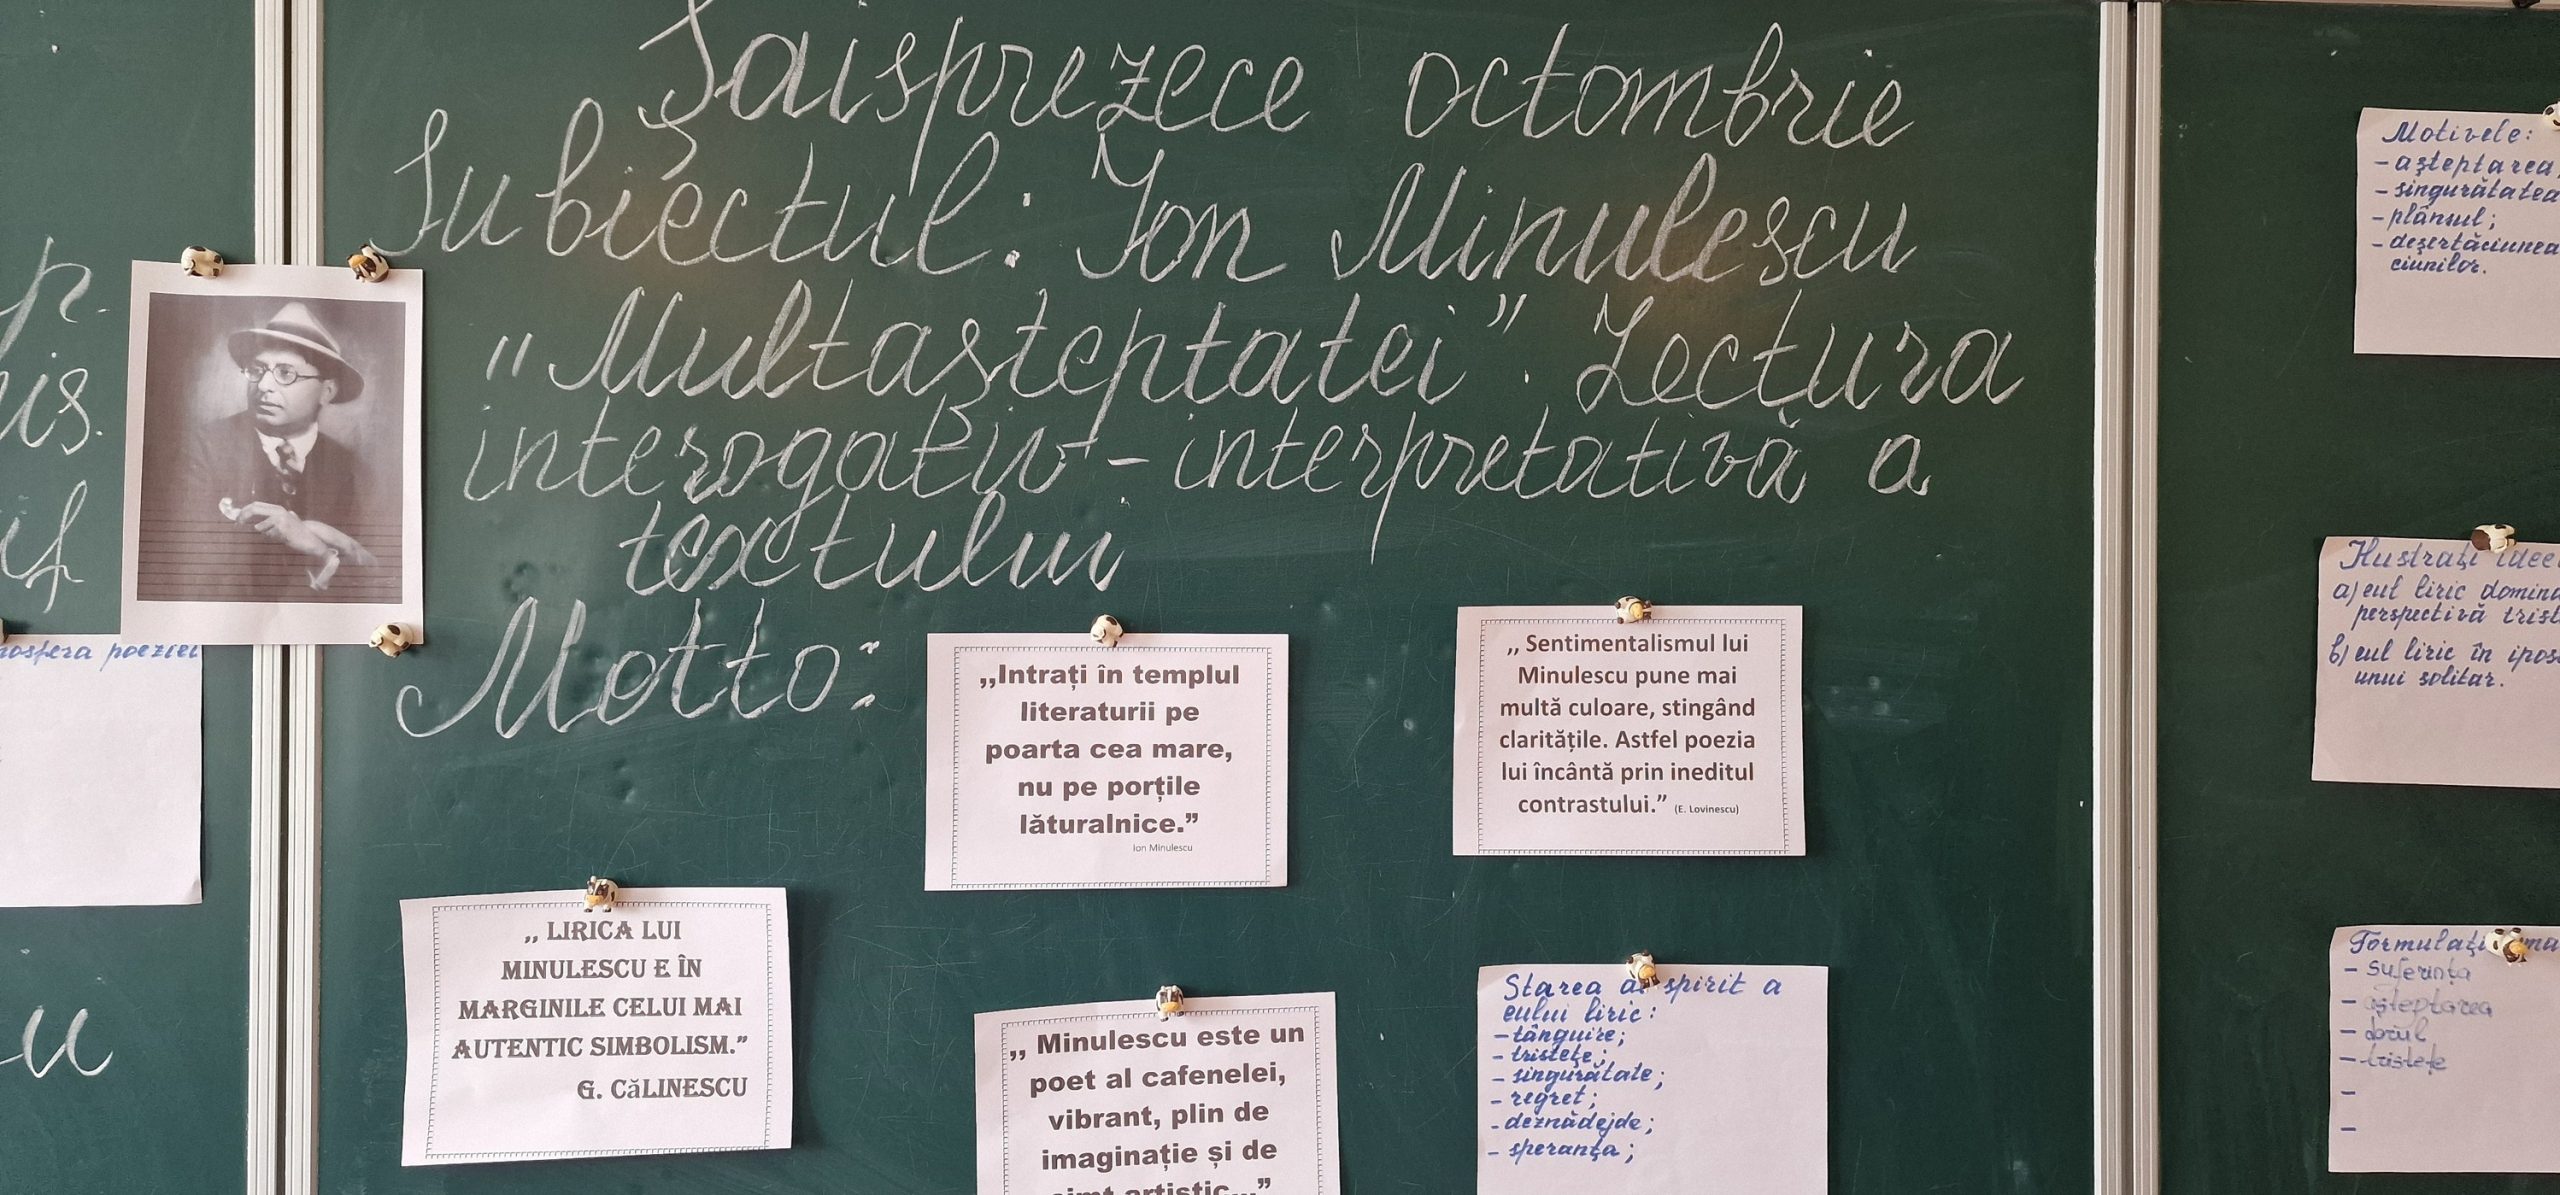 Șaisprezece octombrie
Subiectul: Ion Minulescu
"Multașteptatei". Lectura
interogativ-interpretativă a
textului
Motto:
,,Intrați în templul
literaturii pe
poarta cea mare,
nu pe porțile
lăturalnice.”
Ion Minulescu
,, Sentimentalismul lui
Minulescu pune mai
multă culoare, stingând
claritățile. Astfel poezia
lui încântă prin ineditul
contrastului.” (E. Lovinescu)
,, LIRICA LUI
MINULESCU E ÎN
MARGINILE CELUI MAI
AUTENTIC SIMBOLISM.”
G. CăLINESCU
,, Minulescu este un
poet al cafenelei,
vibrant, plin de
imaginație și de
simț artistic...”
Starea de spirit a
eului liric:
- tânguire;
- tristețe;
- singurătate;
- regret;
- deznădejde;
- speranța;
poeziei
Motivele:
- așteptarea;
- singurătatea
- plânsul;
- deșertăciunea
ciunilor.
Ilustrați idee
a) eul liric domin
perspectivă trist
b) eul liric în ipos
unui solitar.
Formulați
- suferința
- așteptarea
- dorul
- tristețe
-
-